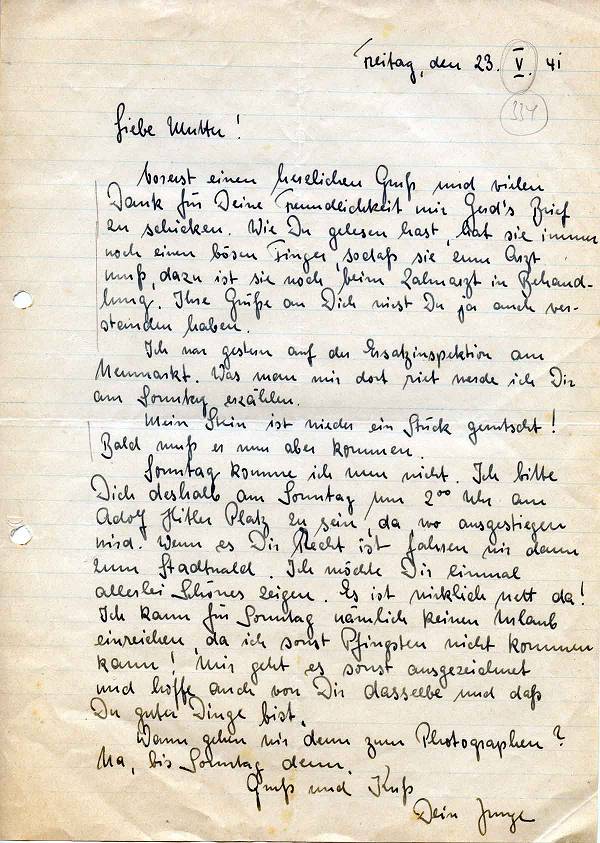 Freitag, den 23. V. 41
334
Liebe Mutter!
Vorerst einen herzlichen Gruß und vielen
Dank für Deine Freundlichkeit mir Gerd's Brief
zu schicken. Wie Du gelesen hast, hat sie immer
noch einen bösen Finger, sodaß sie zum Arzt
muß, dazu ist sie noch beim Zahnarzt in Behand-
lung. Ihre Grüße an Dich wirst Du ja auch ver-
standen haben.
Ich war gestern auf der Ersatzinspektion am
Neumarkt. Was man mir dort riet werde ich Dir
am Sonntag erzählen.
Mein Stein ist wieder ein Stück gerutscht!
Bald muß er nun aber kommen.
Sonntag komme ich nun nicht. Ich bitte
Dich deshalb am Sonntag um 2⁰⁰ Uhr am
Adolf Hitler Platz zu sein, da wo ausgestiegen
wird. Wenn es Dir Recht ist fahren wir dann
zum Stadtwald. Ich möchte Dir einmal
allerlei Schönes zeigen. Es ist wirklich nett da!
Ich kann für Sonntag nämlich keinen Urlaub
einreichen, da ich sonst Pfingsten nicht kommen
kann! Mir geht es sonst ausgezeichnet
und hoffe auch von Dir dasselbe und daß
Du guter Dinge bist.
Wann gehen wir denn zum Photographen?
Na, bis Sonntag denn.
Gruß und Kuß
Dein Junge